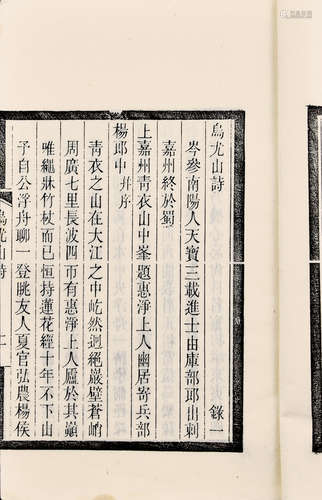 烏尤山詩　錄一
岑參南陽人天寶三載進士由庫部郎出刺
嘉州終於蜀
上嘉州靑衣山中峯題惠淨上人幽居寄兵部
楊郎中幷序
靑衣之山在大江之中屹然迥絕巖壁蒼峭
周廣七里長波四帀有惠淨上人廬於其巔
唯繩牀竹杖而已恒持蓮花經十年不下山
予自公浮舟聊一登眺友人夏官弘農楊侯
烏尤山詩